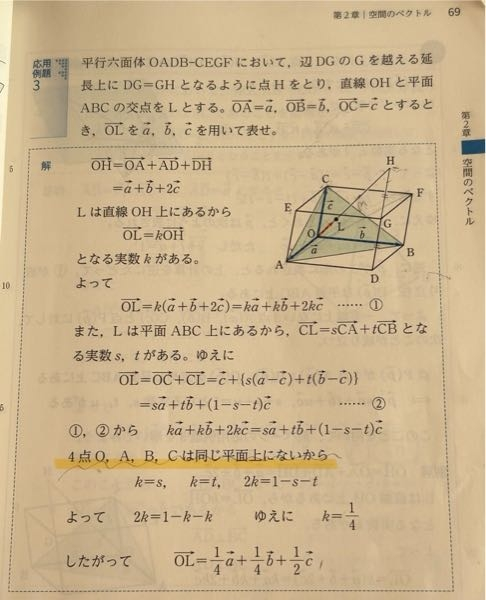 第2章｜空間のベクトル 69
応用例題3
平行六面体OADB-CEGFにおいて，辺DGのGを越える延
長上にDG=GHとなるように点Hをとり，直線OHと平面
ABCの交点をLとする。$\overrightarrow{OA}=\vec{a}$，$\overrightarrow{OB}=\vec{b}$，$\overrightarrow{OC}=\vec{c}$とすると
き，$\overrightarrow{OL}$を$\vec{a}$，$\vec{b}$，$\vec{c}$を用いて表せ。
第2章 空間のベクトル
5
解 $\overrightarrow{OH}=\overrightarrow{OA}+\overrightarrow{AD}+\overrightarrow{DH}$
$=\vec{a}+\vec{b}+2\vec{c}$
Lは直線OH上にあるから
$\overrightarrow{OL}=k\overrightarrow{OH}$
となる実数kがある。
H
C
F
E
$\vec{c}$
L
G
O
$\vec{b}$
$\vec{a}$
B
A
D
10
よって
$\overrightarrow{OL}=k(\vec{a}+\vec{b}+2\vec{c})=k\vec{a}+k\vec{b}+2k\vec{c}$ …… ①
また，Lは平面ABC上にあるから，$\overrightarrow{CL}=s\overrightarrow{CA}+t\overrightarrow{CB}$とな
る実数s，tがある。ゆえに
$\overrightarrow{OL}=\overrightarrow{OC}+\overrightarrow{CL}=\vec{c}+\{s(\vec{a}-\vec{c})+t(\vec{b}-\vec{c})\}$
$=s\vec{a}+t\vec{b}+(1-s-t)\vec{c}$ …… ②
①，②から $k\vec{a}+k\vec{b}+2k\vec{c}=s\vec{a}+t\vec{b}+(1-s-t)\vec{c}$
4点O，A，B，Cは同じ平面上にないから
k=s， k=t， 2k=1-s-t
よって 2k=1-k-k ゆえに $k=\frac{1}{4}$
したがって $\overrightarrow{OL}=\frac{1}{4}\vec{a}+\frac{1}{4}\vec{b}+\frac{1}{2}\vec{c}$